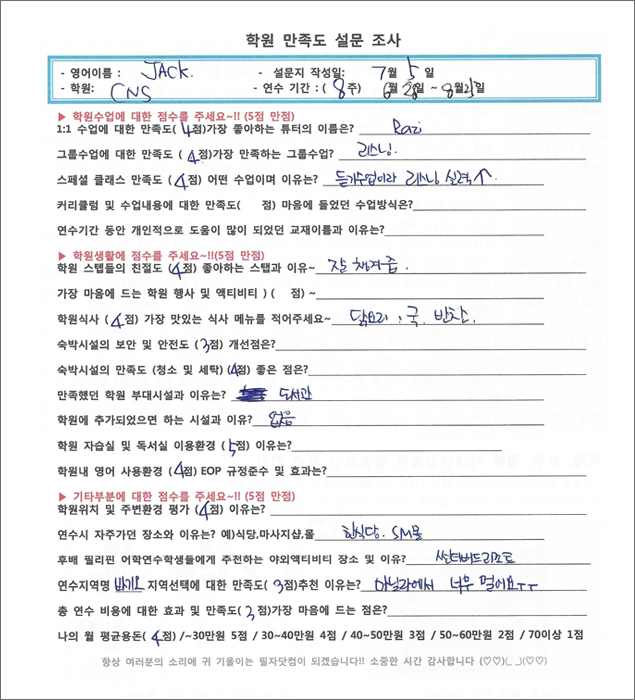 학원 만족도 설문 조사
- 영어이름 : JACK. - 설문지 작성일: 7월 5 일
- 학원: CNS - 연수 기간 : ( 8 주) 6월 28일 ~ 8월 일
▶ 학원수업에 대한 점수를 주세요~!! (5점 만점)
1:1 수업에 대한 만족도( 4점)가장 좋아하는 튜터의 이름은?
그룹수업에 대한 만족도 ( 4점)가장 만족하는 그룹수업? 리스닝.
스페셜 클래스 만족도 ( 4점) 어떤 수업이며 이유는? 듣기수업이라 리스닝 실력↑.
커리큘럼 및 수업내용에 대한 만족도( 점) 마음에 들었던 수업방식은?
연수기간 동안 개인적으로 도움이 많이 되었던 교재이름과 이유는?
▶ 학원생활에 점수를 주세요~!!(5점 만점)
학원 스텝들의 친절도 (4점) 좋아하는 스탭과 이유~ 잘 챙겨줌.
가장 마음에 드는 학원 행사 및 액티비티 ) ( 점) ~
학원식사 ( 4점) 가장 맛있는 식사 메뉴를 적어주세요~ 닭요리, 국, 반찬.
숙박시설의 보안 및 안전도 ( 3점) 개선점은?
숙박시설의 만족도 (청소 및 세탁) (4점) 좋은 점은?
만족했던 학원 부대시설과 이유는? 도서관
학원에 추가되었으면 하는 시설과 이유? 없음
학원 자습실 및 독서실 이용환경 ( 5점) 이유는?
학원내 영어 사용환경 ( 4점) EOP 규정준수 및 효과는?
▶ 기타부분에 대한 점수를 주세요~!! (5점 만점)
학원위치 및 주변환경 평가 ( 4점) 이유는?
연수시 자주가던 장소와 이유는? 예)식당,마사지샵,몰 한식당. SM몰
후배 필리핀 어학연수학생들에게 추천하는 야외액티비티 장소 및 이유? 썬더버드리조트
연수지역명 바기오 지역선택에 대한 만족도( 3점)추천 이유는? 마닐라에서 너무 멀어요ㅜㅜ
총 연수 비용에 대한 효과 및 만족도( 3점)가장 마음에 드는 점은?
나의 월 평균용돈( 4점) /~30만원 5점 / 30~40만원 4점 / 40~50만원 3점 / 50~60만원 2점 / 70이상 1점
항상 여러분의 소리에 귀 기울이는 필자닷컴이 되겠습니다!! 소중한 시간 감사합니다 (♡♡)(_ _)(♡♡)